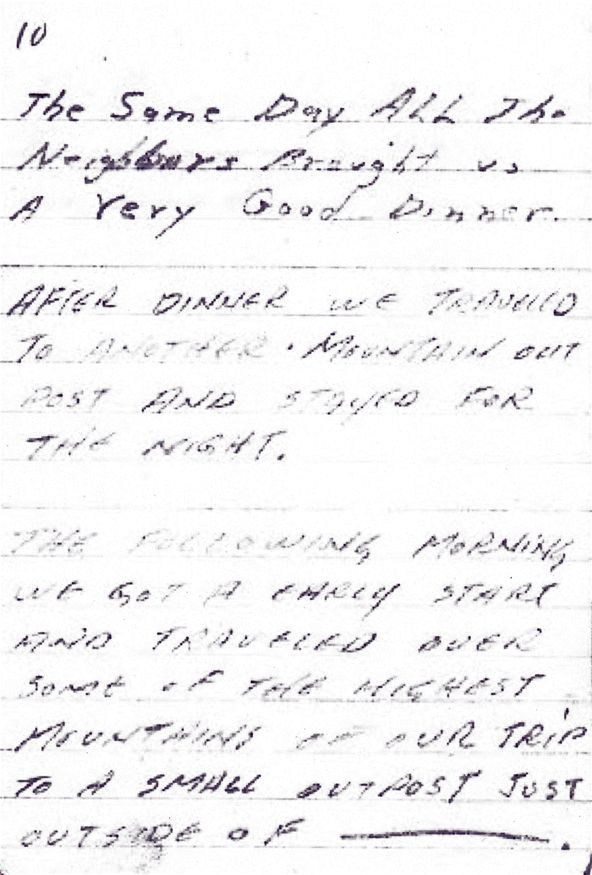 10
The Same Day ALL The
Neighbors Brought us
A Very Good Dinner.
AFTER DINNER WE TRAVELED
TO ANOTHER MOUNTAIN OUT
POST AND STAYED FOR
THE NIGHT.
THE FOLLOWING MORNING
WE GOT A EARLY START
AND TRAVELED OVER
SOME OF THE HIGHEST
MOUNTAINS OF OUR TRIP
TO A SMALL OUTPOST JUST
OUTSIDE OF ———.